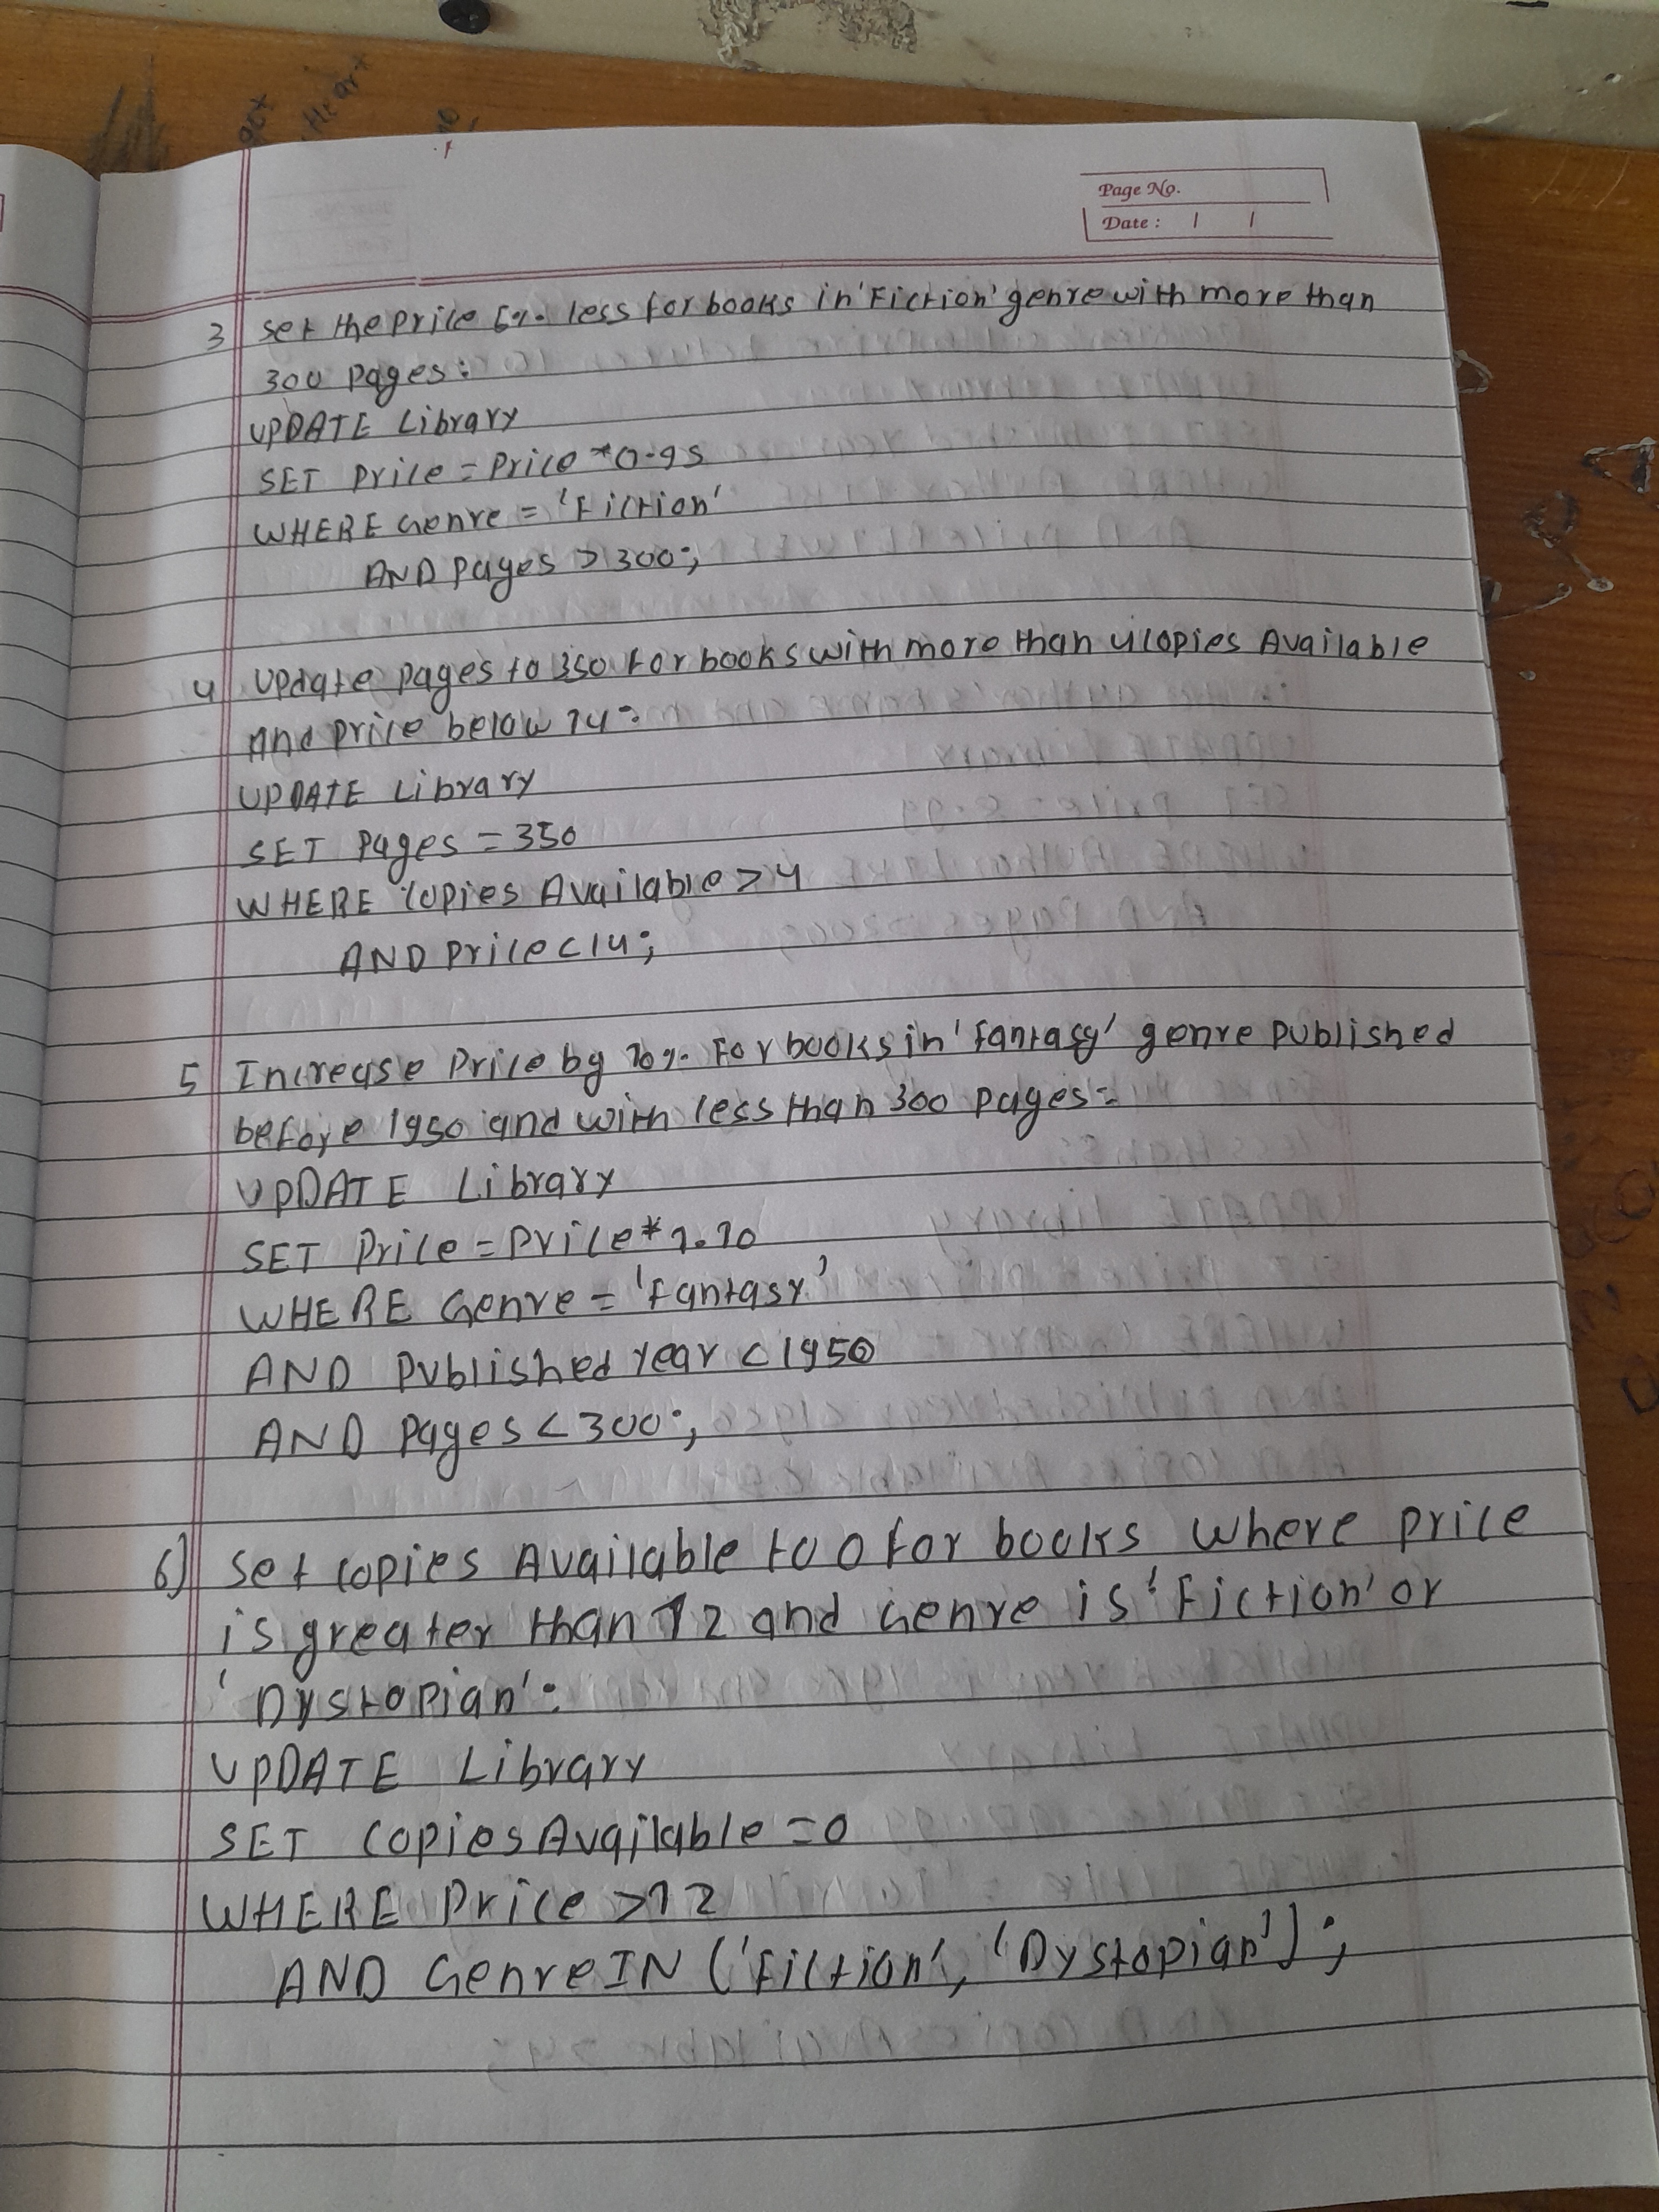 Page No.
Date :
3 Set the Price 5% less for books in 'Fiction' genre with more than
300 Pages:
UPDATE Library
SET Price = Price * 0.95
WHERE Genre = 'Fiction'
AND Pages > 300;
4 Update pages to 350 for books with more than 4 copies Available
And price below 14:
UPDATE Library
SET Pages = 350
WHERE Copies Available > 4
AND Price < 14;
5 Increase Price by 10% For books in 'fantasy' genre published
before 1950 and with less than 300 Pages:
UPDATE Library
SET Price = Price * 1.10
WHERE Genre = 'Fantasy'
AND Published Year < 1950
AND Pages < 300;
6) Set copies Available to 0 for books where price
is greater than 12 and Genre is 'Fiction' or
'Dystopian':
UPDATE Library
SET CopiesAvailable = 0
WHERE Price > 12
AND Genre IN ('Fiction', 'Dystopian');